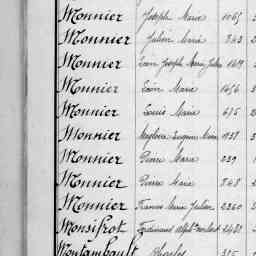 Monnier Joseph Marie 1065
Monnier Julien Marie 343
Monnier Jean Joseph Marie Julien
Monnier Marie 1656
Monnier Louis Marie 675
Monnier Eugene Marie 1938
Monnier Pierre Marie 239
Monnier Pierre Marie 848
Monnier Francois Marie Julien 2260
Monsifrot Ferdinand
Montambault Charles